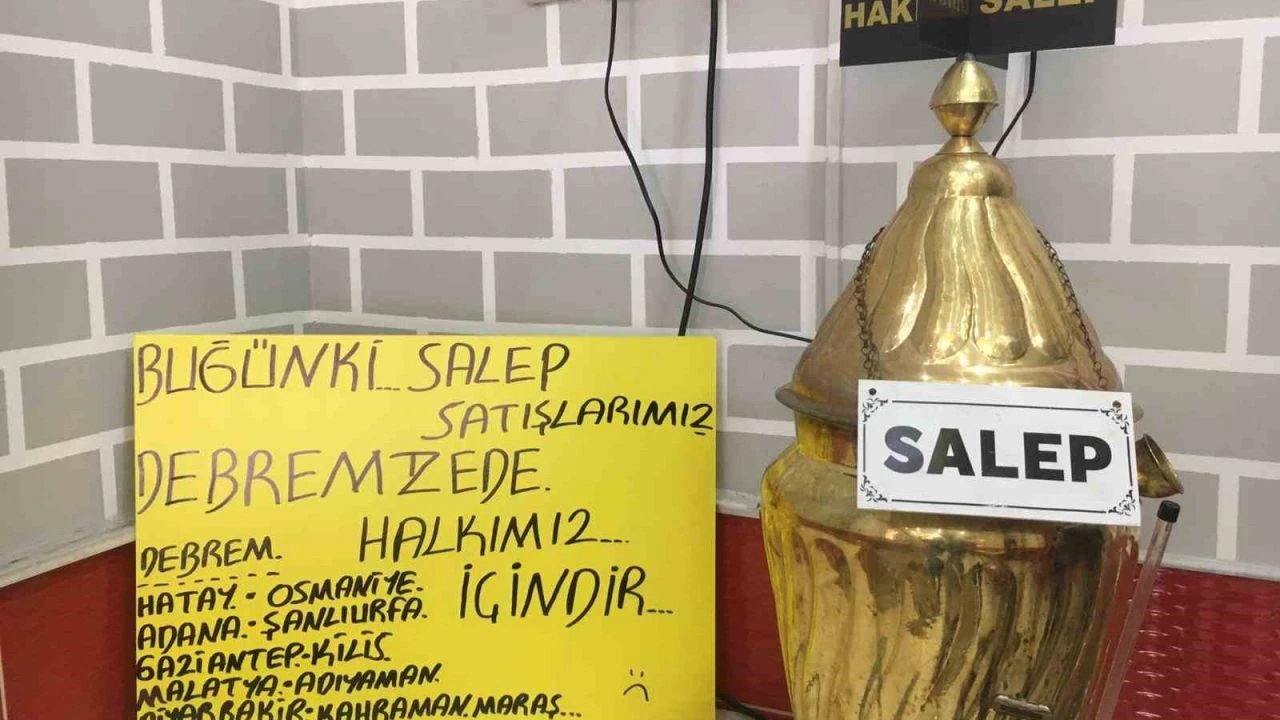 HAK SALEP
BUĞÜNKİ... SALEP
SATIŞLARIMIZ
DEBREMZEDE.
HALKIMIZ...
İÇİNDİR...
DEBREM.
HATAY.- OSMANİYE.
ADANA.- ŞANLIURFA.
GAZİANTEP.- KİLİS.
MALATYA.- ADIYAMAN.
DİYARBAKIR- KAHRAMAN.MARAŞ...
SALEP